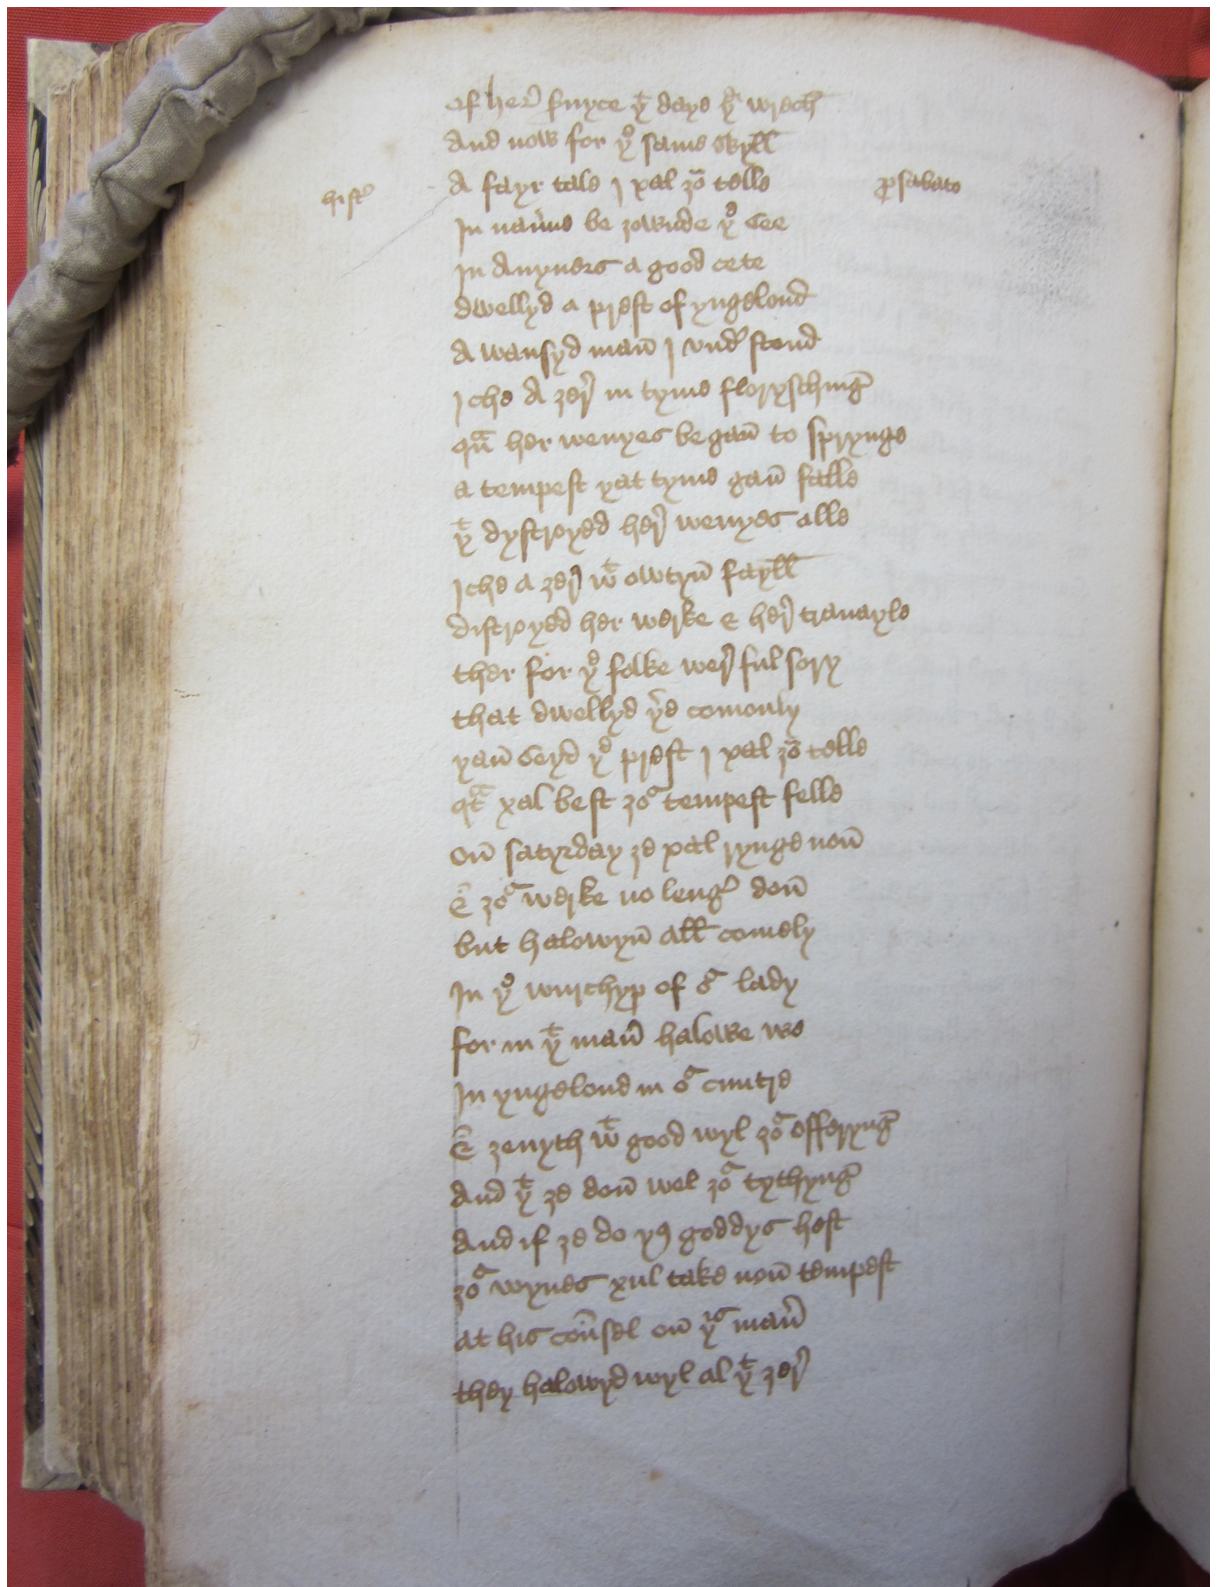 of her̉ seruyce yͭ days yͤ wroch
And now for yͤ same skyll
hist̉ A fayr tale j xal ȝoͧ telle ꝓ sabato
In nauer̉ne be ȝownde yͤ see
In Anyuers a good cete
dwellyd a prest of yngelond
A wansyd man̄ j vnd̉ stond
Iche A ȝer̉ in tyme floryschinḡ
qn̄ her wenyes be gan̄ to sprynge
a tempest yat tyme gan̄ falle
yͭ dystroyed her̉ wenyes alle
Iche a ȝer̉ wͭ owtyn̄ fayll
distroyed her werke & her̉ trauayle
ther for yͤ folke wer̉ ful sory
that dwellyd ỷe comonly
yan̄ seyd yͤ prest j xal ȝoͧ telle
qͭ xal best ȝoͬ tempest felle
On̄ satyrday ȝe xal rynge non̄
& ȝoͬ werke no leng̉ don̄
but halowyn̄ all comely
In yͤ wurchyp of oͬ lady
for in yͭ man̉ halowe we
In yngelond in oͬ cuntre
& ȝeuyth wͭ good wyl ȝoͬ offeryng̉
And yͭ ȝe don̄ wel ȝoͬ tythyng̉
And if ȝe do yꝰ goddys hest
ȝoͬ wynes xul take non̄ tempest
at his coūsel on̄ yͥs man̉
they halowyd wyl al yͭ ȝer̉